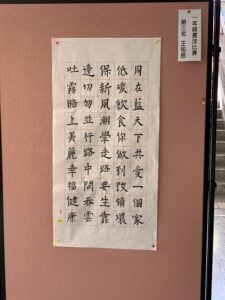 一年級書法比賽
第三名 王祐恩
同在藍天下共愛一個家
低碳飲食你做到改領環
保新風潮學走路要生靠
邊切勿並行路中間吞雲
吐霧賠上美麗幸福健康